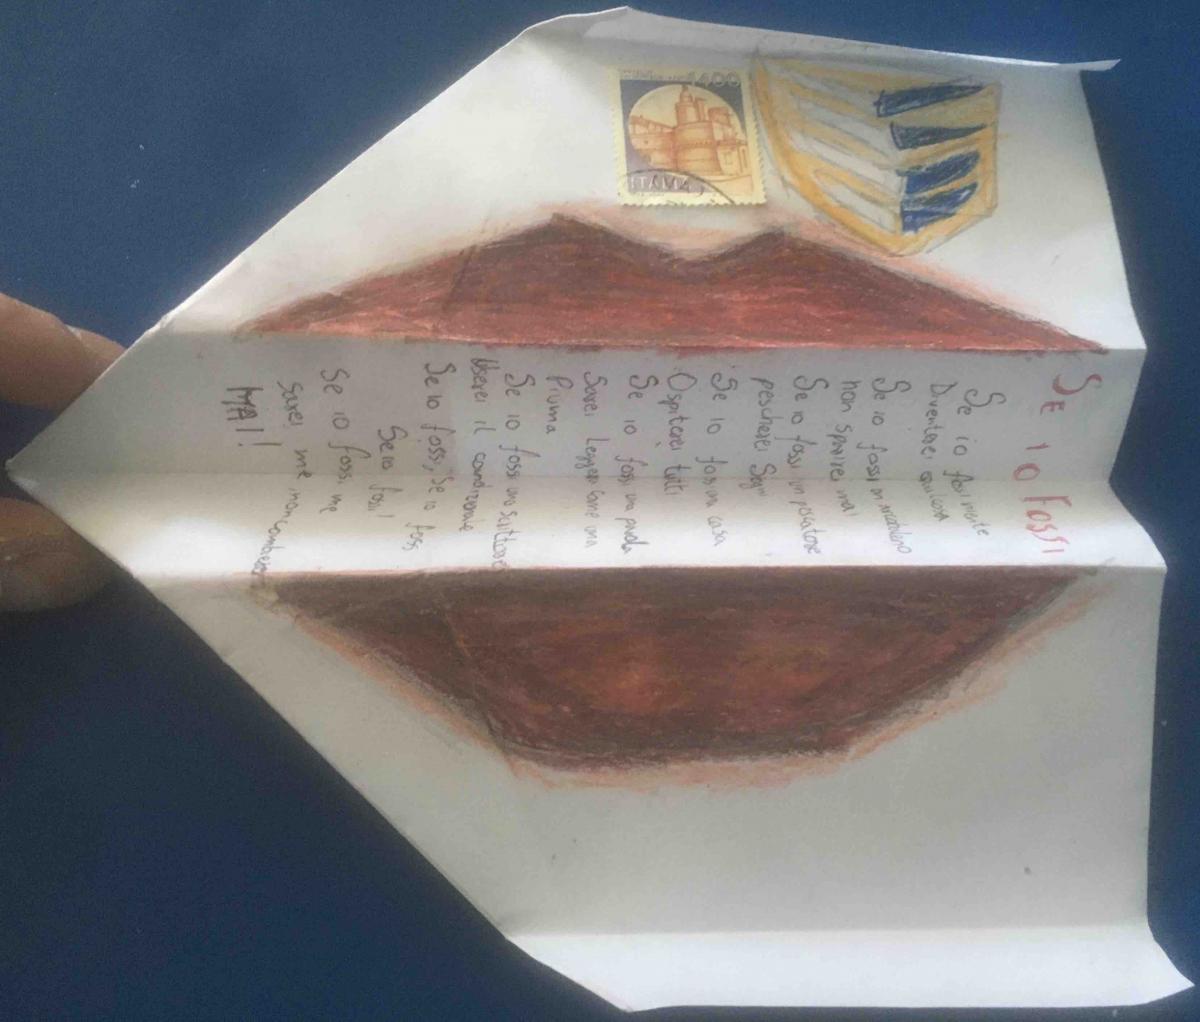 SE IO FOSSI
Se io fossi niente
Diventerei qualcosa
Se io fossi un arcobaleno
non sparirei mai
Se io fossi un pescatore
pescherei Sogni
Se io fossi una casa
Ospiterei tutti
Se io fossi una parola
Sarei Leggera come una
Piuma
Se io fossi uno scrittore
Userei il condizionale
Se io fossi, Se io fossi
Se io fossi
Se io fossi me
Sarei me, non cambierei
MAI!
1400
ITALIA